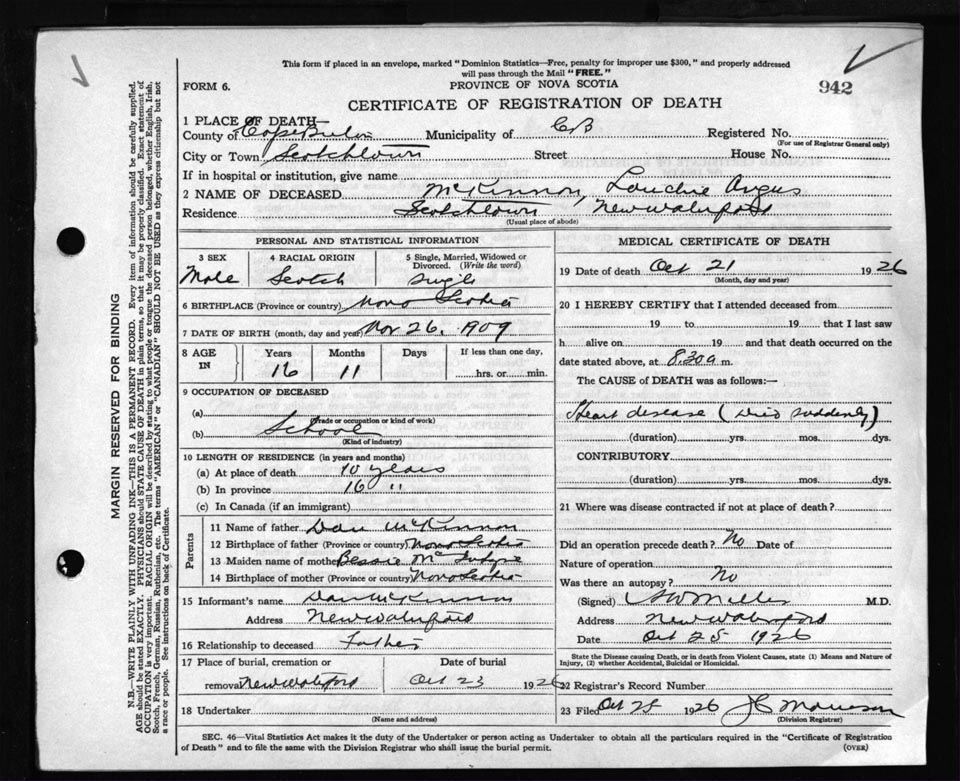 This form if placed in an envelope, marked "Dominion Statistics—Free, penalty for improper use $300," and properly addressed
will pass through the Mail "FREE."
942
FORM 6.
PROVINCE OF NOVA SCOTIA
CERTIFICATE OF REGISTRATION OF DEATH
1 PLACE OF DEATH—
County of Cape Breton Municipality of CB Registered No.
(For use of Registrar General only)
City or Town Scotchtown Street House No.
If in hospital or institution, give name
2 NAME OF DECEASED McKinnon, Lauchie Angus
Residence Scotchtown, New Waterford
(Usual place of abode)
PERSONAL AND STATISTICAL INFORMATION
3 SEX 4 RACIAL ORIGIN 5 Single, Married, Widowed or Divorced. (Write the word)
Male Scotch Single
6 BIRTHPLACE (Province or country) Nova Scotia
7 DATE OF BIRTH (month, day and year) Nov 26, 1909
8 AGE IN Years Months Days If less than one day,
16 11 hrs. or min.
9 OCCUPATION OF DECEASED
(a)
(Trade or occupation or kind of work)
(b) School
(Kind of industry)
10 LENGTH OF RESIDENCE (in years and months)
(a) At place of death 10 years
(b) In province 16 "
(c) In Canada (if an immigrant)
Parents
11 Name of father Dan McKinnon
12 Birthplace of father (Province or country) Nova Scotia
13 Maiden name of mother Bessie
14 Birthplace of mother (Province or country) Nova Scotia
15 Informant's name Dan McKinnon
Address New Waterford
16 Relationship to deceased Father
17 Place of burial, cremation or Date of burial
removal New Waterford Oct 23 1926
18 Undertaker
(Name and address)
MEDICAL CERTIFICATE OF DEATH
19 Date of death Oct 21 1926
(Month, day and year)
20 I HEREBY CERTIFY that I attended deceased from
19 to 19 that I last saw
h alive on 19 and that death occurred on the
date stated above, at 8.30 a m.
The CAUSE of DEATH was as follows:—
Heart disease (Died suddenly)
(duration) yrs. mos. dys.
CONTRIBUTORY
(duration) yrs. mos. dys.
21 Where was disease contracted if not at place of death?
Did an operation precede death? No Date of
Nature of operation
Was there an autopsy? No
(Signed) Miller M.D.
Address New Waterford
Date Oct 25 1926
State the Disease causing Death, or in death from Violent Causes, state (1) Means and Nature of
Injury, (2) whether Accidental, Suicidal or Homicidal.
22 Registrar's Record Number
23 Filed Oct 25 1926 J C Morrison
(Division Registrar)
SEC. 46—Vital Statistics Act makes it the duty of the Undertaker or person acting as Undertaker to obtain all the particulars required in the "Certificate of Registration
of Death" and to file the same with the Division Registrar who shall issue the burial permit.
(OVER)
MARGIN RESERVED FOR BINDING
N.B.—WRITE PLAINLY WITH UNFADING INK—THIS IS A PERMANENT RECORD. Every item of information should be carefully supplied.
AGE should be stated EXACTLY. PHYSICIANS should STATE CAUSE OF DEATH in plain terms, so that it may be properly classified. Exact statement of
OCCUPATION is very important. RACIAL ORIGIN will be described by stating to what people or tongue the deceased person belonged, whether English, Irish,
Scotch, French, German, Russian, Ruthenian, etc. The terms "AMERICAN" or "CANADIAN" SHOULD NOT BE USED as they express citizenship but not
a race or people. See instructions on back of Certificate.